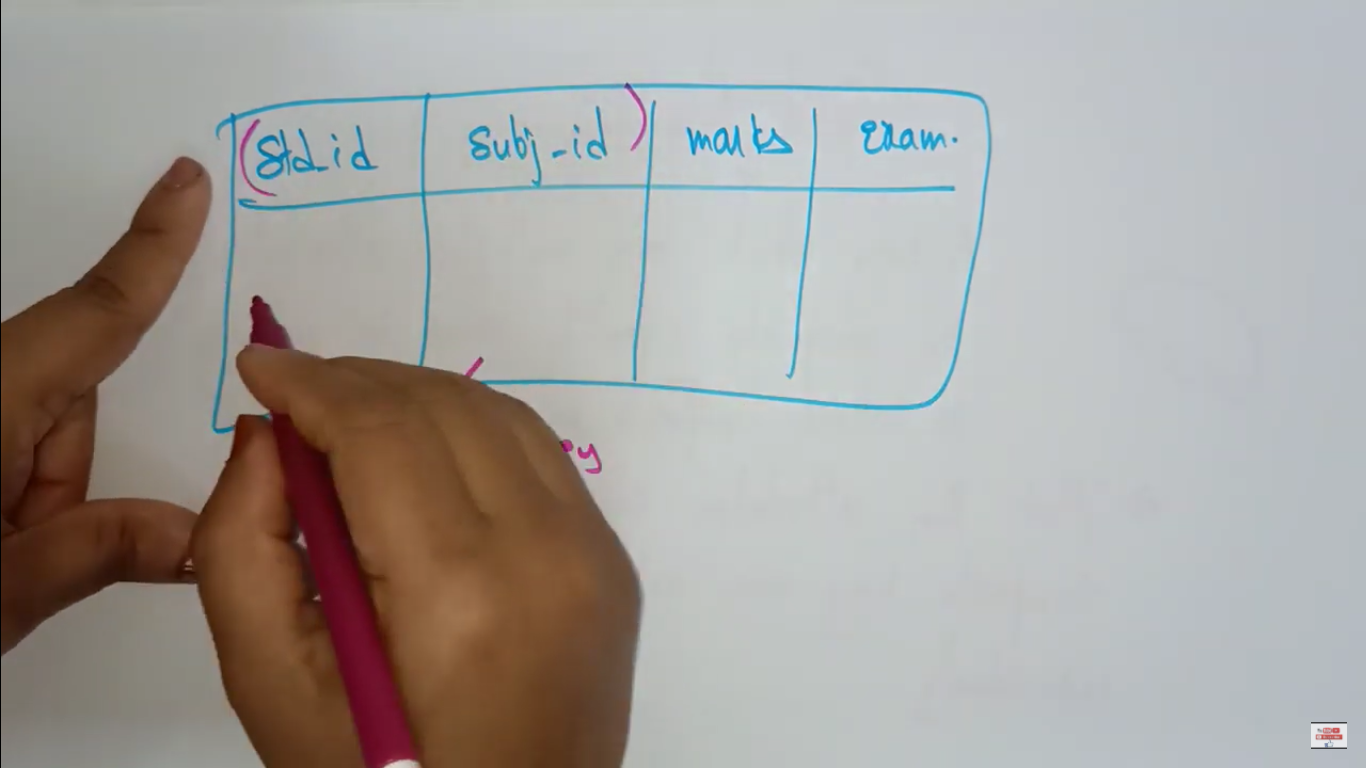 (Std_id Subj_id) marks Exam.